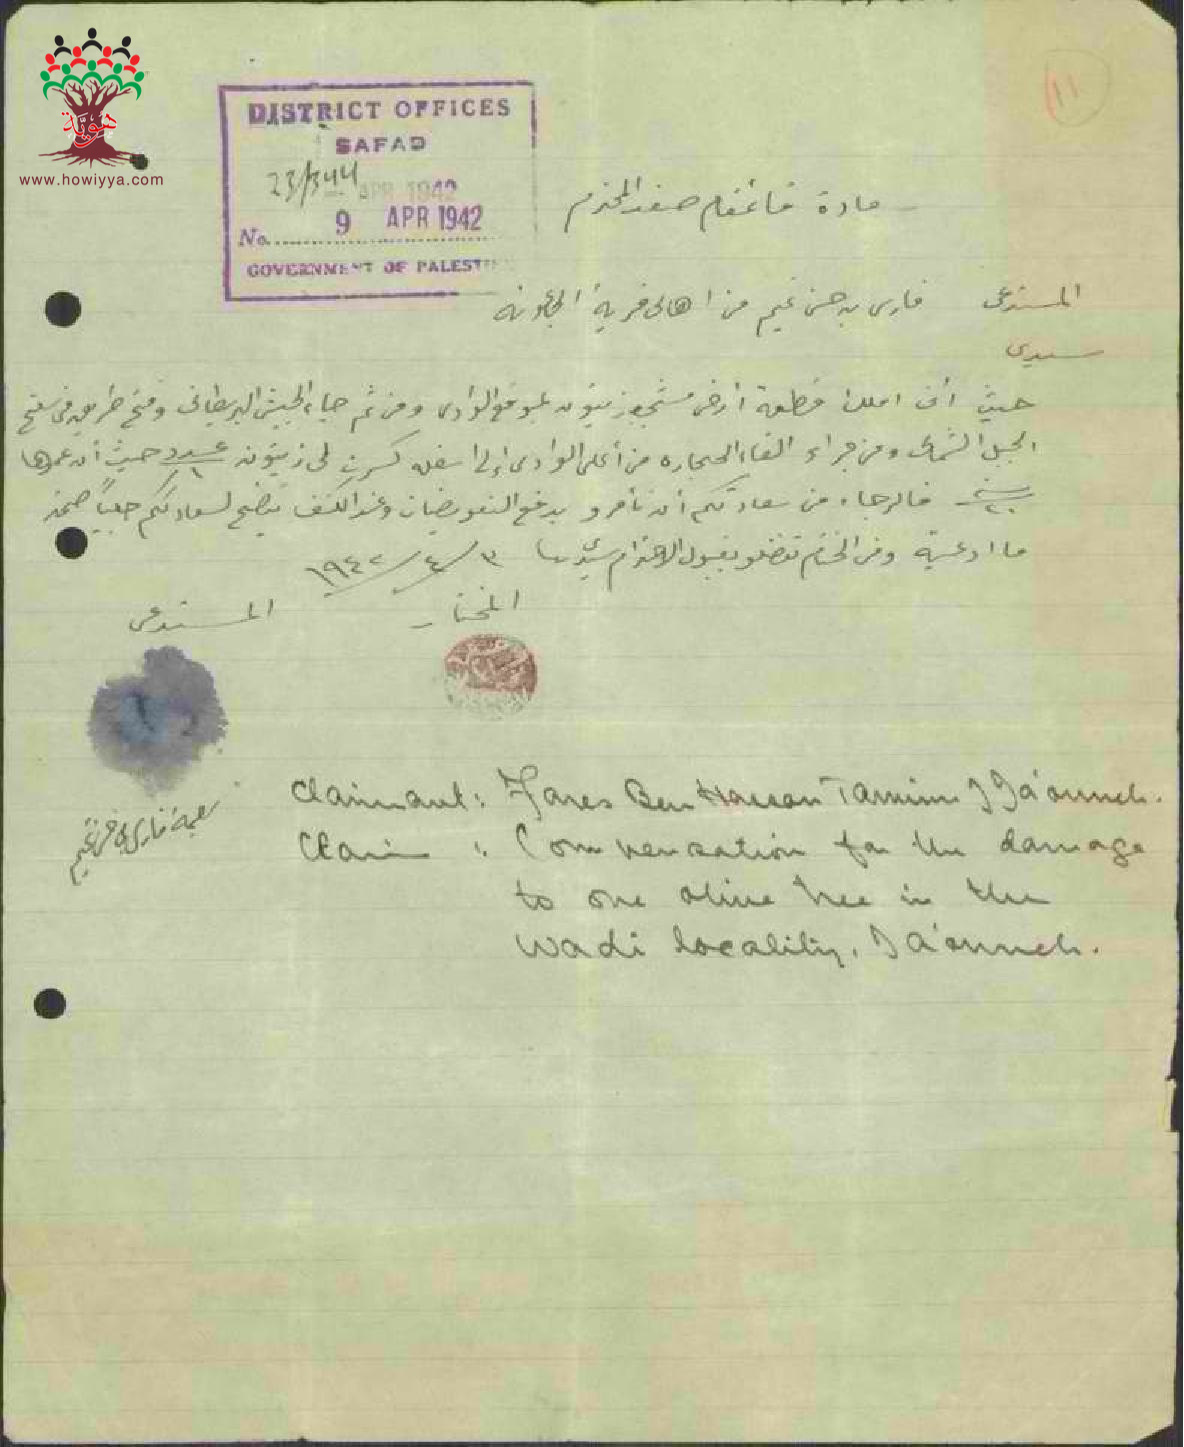 هويّة
www.howiyya.com
١١
DISTRICT OFFICES
SAFAD
23/344
APR 1942
No. 9 APR 1942
GOVERNMENT OF PALEST
سعادة قائمقام صفد المحترم
المستدعي فارس بن حسن تميم من اهالي قرية الجاعونه
سيدي
حيث أني املك قطعة أرض مشجره زيتون بموقع الوادي ومن ثم جاء الجيش البريطاني وفتح طريق في سفح
الجبل الشمالي ومن جراء القاء الحجاره من أعلى الوادي إلى اسفله كسرت لي زيتونه عدد ١ حيث أن عمرها
فالرجاء من سعادتكم أن تأمرو بدفع التعويضات وعند الكشف يتضح لسعادتكم جلياً صحة
ما ادعيته وفي الختام تفضلو بقبول الاحترام سيدنا ٣/٤/١٩٤٢
المختار المستدعي
بصمة فارس بن حسن تميم
Claimant: Fares Ben Hassan Tamim J Ja'ouneh.
Claim : Compensation for the damage
to one olive tree in the
Wadi locality, Ja'ouneh.